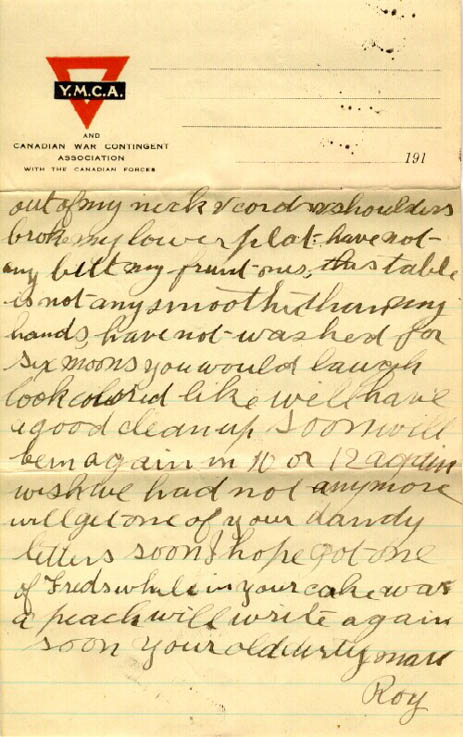 Y.M.C.A.
AND
CANADIAN WAR CONTINGENT
ASSOCIATION
WITH THE CANADIAN FORCES
191
out of my neck & cord & shoulders
broke my lower plat have not
any but my frunt ones, this table
is not any smoother than my
hands, have not washed for
six moons you would laugh
look colored like will have
a good clean up soon will
be in again in 10 or 12 again
wish we had not anymore
will get one of your dandy
letters soon I hope got one
of Freds while in your cake was
a peach will write again
soon your old dirty man
Roy